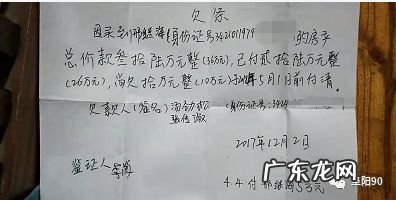 欠条
因买至邢继海(身份证号3421011979 的房子
总价款叁拾陆万元整(36万元),已付贰拾陆万元整
(26万元),尚欠拾万元整(10万元)于 年5月1日前付清。
欠款人(签名) 身份证号:3424
2017年12月2日
鉴证人
4.4付邢继海5万元
阜阳90
广东龙网